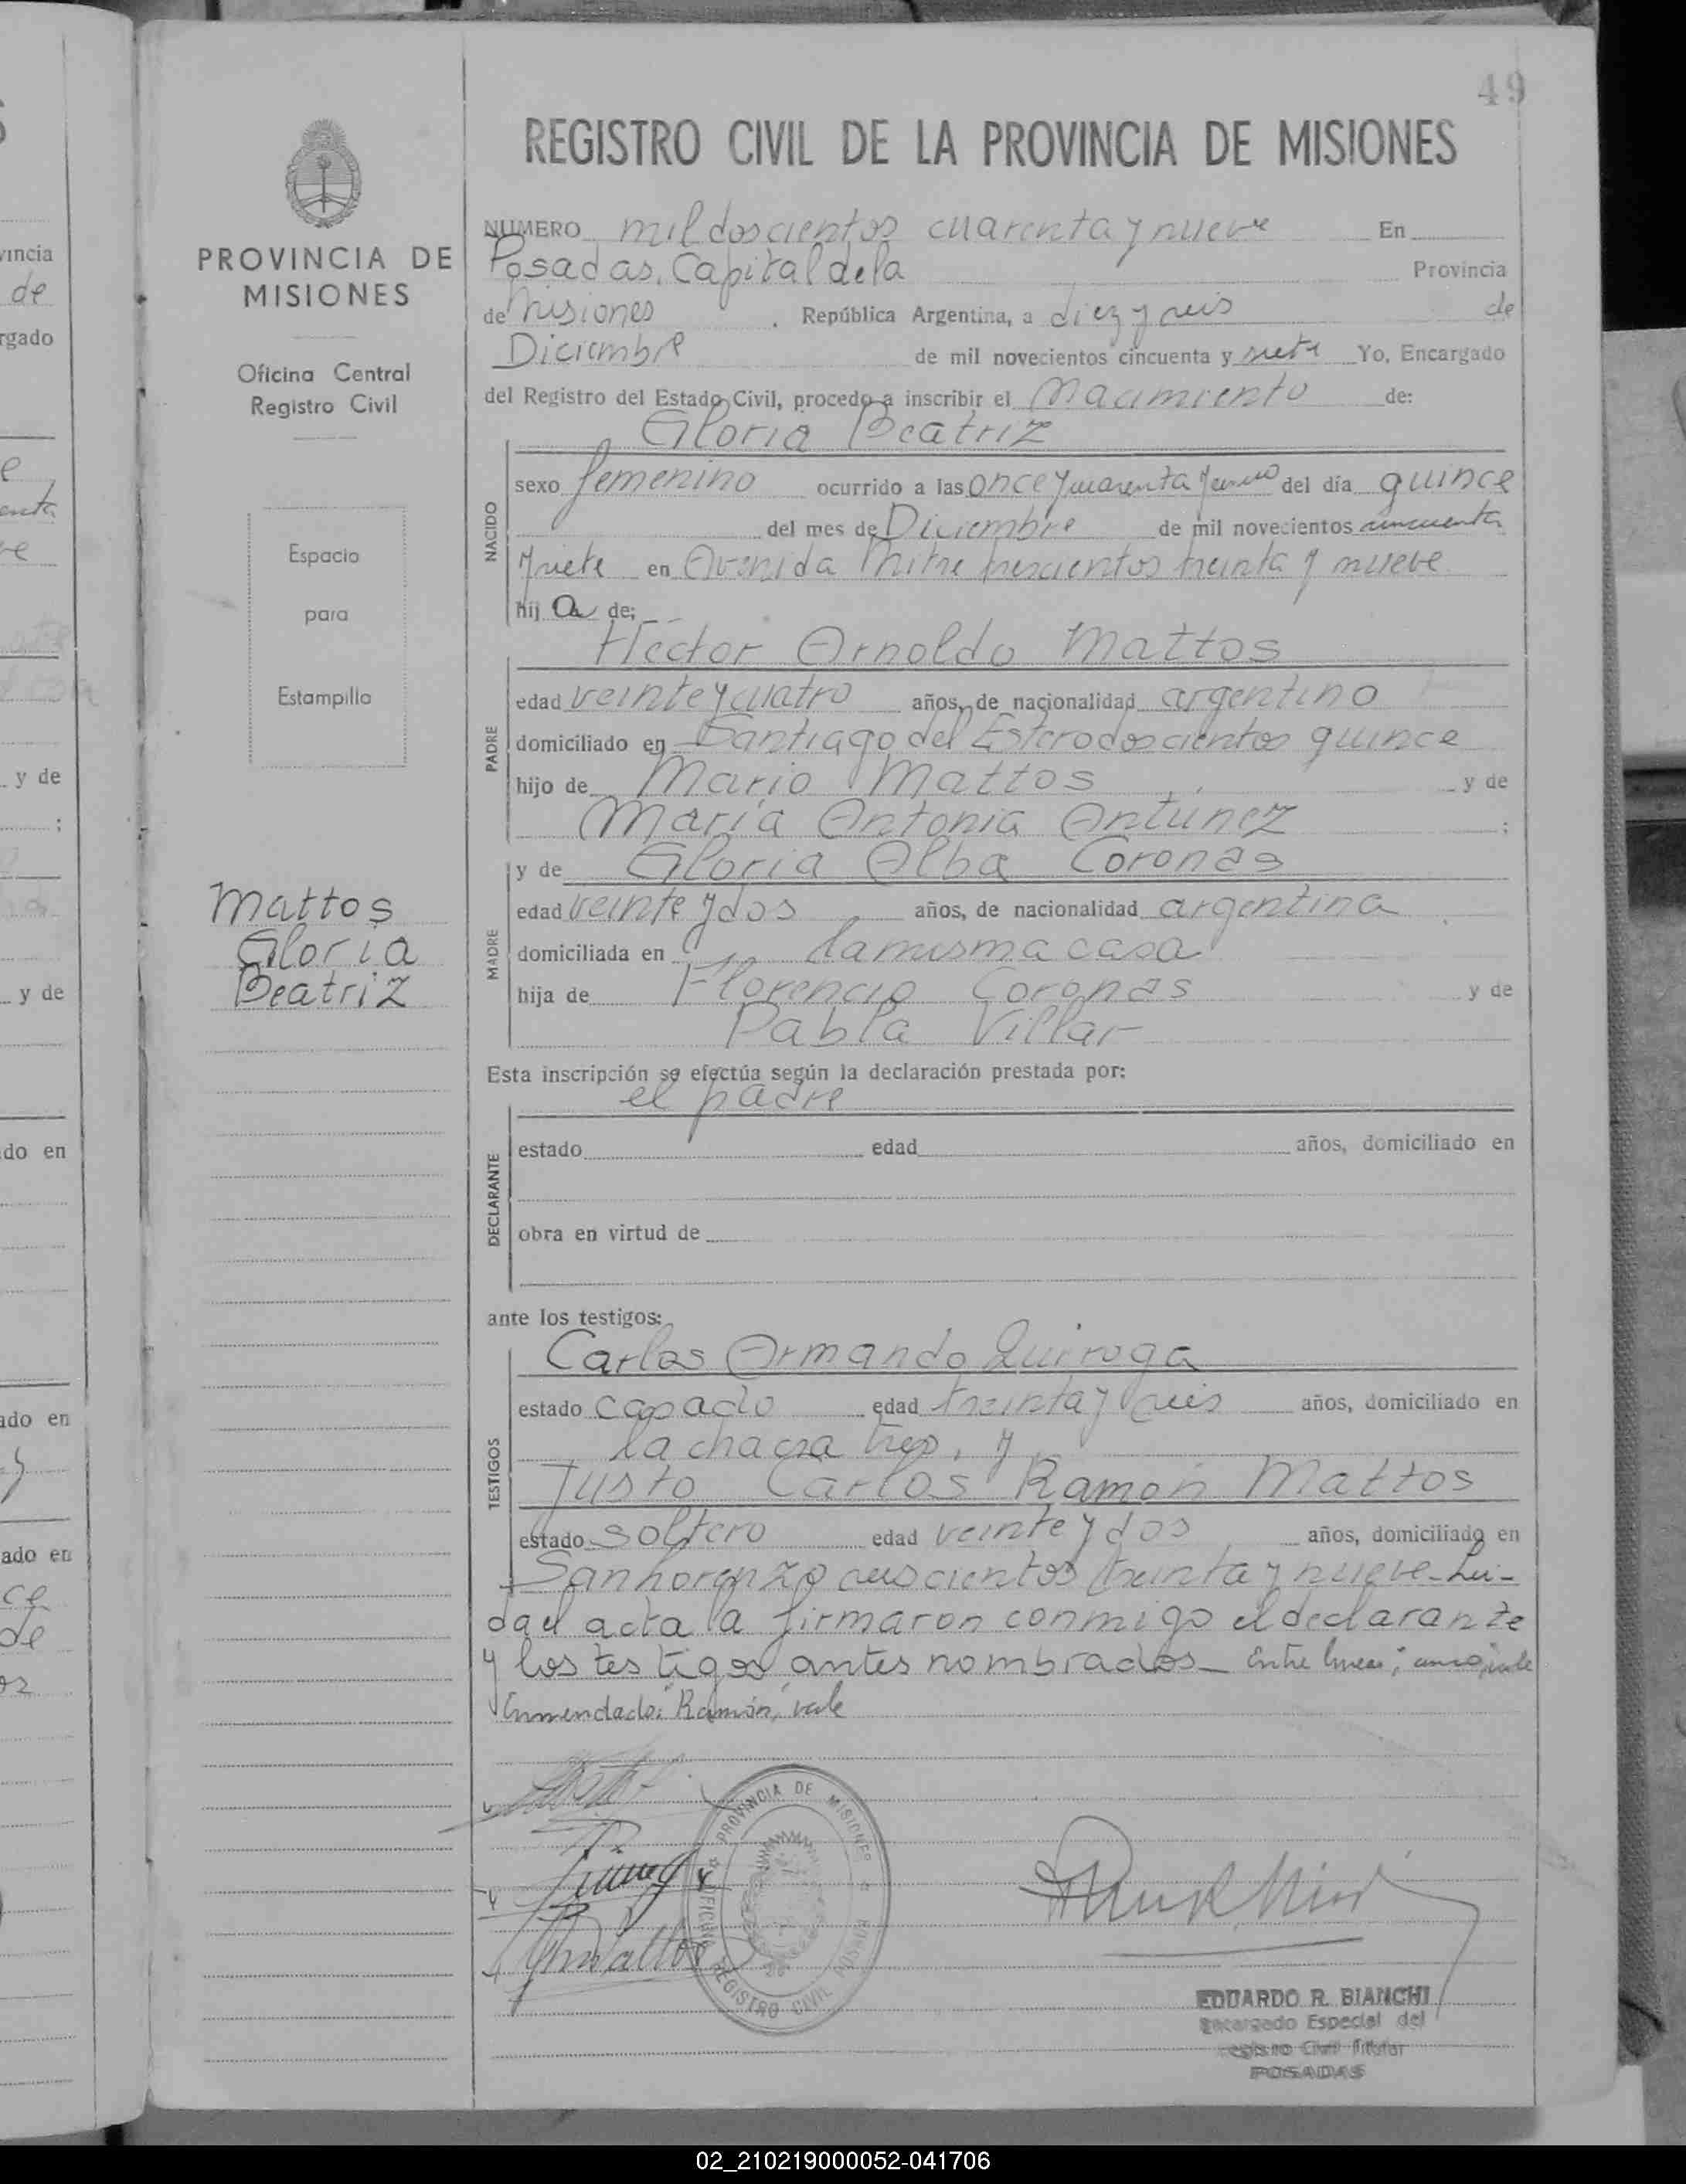 49
REGISTRO CIVIL DE LA PROVINCIA DE MISIONES
PROVINCIA DE
MISIONES
Oficina Central
Registro Civil
Espacio
para
Estampilla
Mattos
Gloria
Beatriz
NUMERO mil doscientos cuarenta y nueve En
Posadas, Capital de la Provincia
de Misiones, República Argentina, a diez y seis de
Diciembre de mil novecientos cincuenta y siete Yo, Encargado
del Registro del Estado Civil, procedo a inscribir el Nacimiento de:
Gloria Beatriz
NACIDO
sexo femenino ocurrido a las once y cuarenta y cinco del día quince
del mes de Diciembre de mil novecientos cincuenta
y siete en Avenida Mitre trescientos treinta y nueve
hij a de:
Héctor Arnoldo Mattos
PADRE
edad veinte y cuatro años, de nacionalidad argentino
domiciliado en Santiago del Estero doscientos quince
hijo de Mario Mattos y de
María Antonia Antúnez ;
y de Gloria Alba Coronas
MADRE
edad veinte y dos años, de nacionalidad argentina
domiciliada en la misma casa
hija de Florencio Coronas y de
Pabla Villar
Esta inscripción se efectúa según la declaración prestada por:
el padre
DECLARANTE
estado edad años, domiciliado en
obra en virtud de
ante los testigos:
Carlos Armando Quiroga
TESTIGOS
estado casado edad treinta y seis años, domiciliado en
la chacra tres, y
Justo Carlos Ramón Mattos
estado soltero edad veinte y dos años, domiciliado en
San Lorenzo seiscientos treinta y nueve - Lei-
da el acta la firmaron conmigo el declarante
y los testigos antes nombrados - Entre lineas; cinco, vale
Enmendado: "Ramón", vale
PROVINCIA DE MISIONES
REGISTRO CIVIL
EDUARDO R. BIANCHI
Encargado Especial del
Registro Civil Titular
POSADAS
02_210219000052-041706